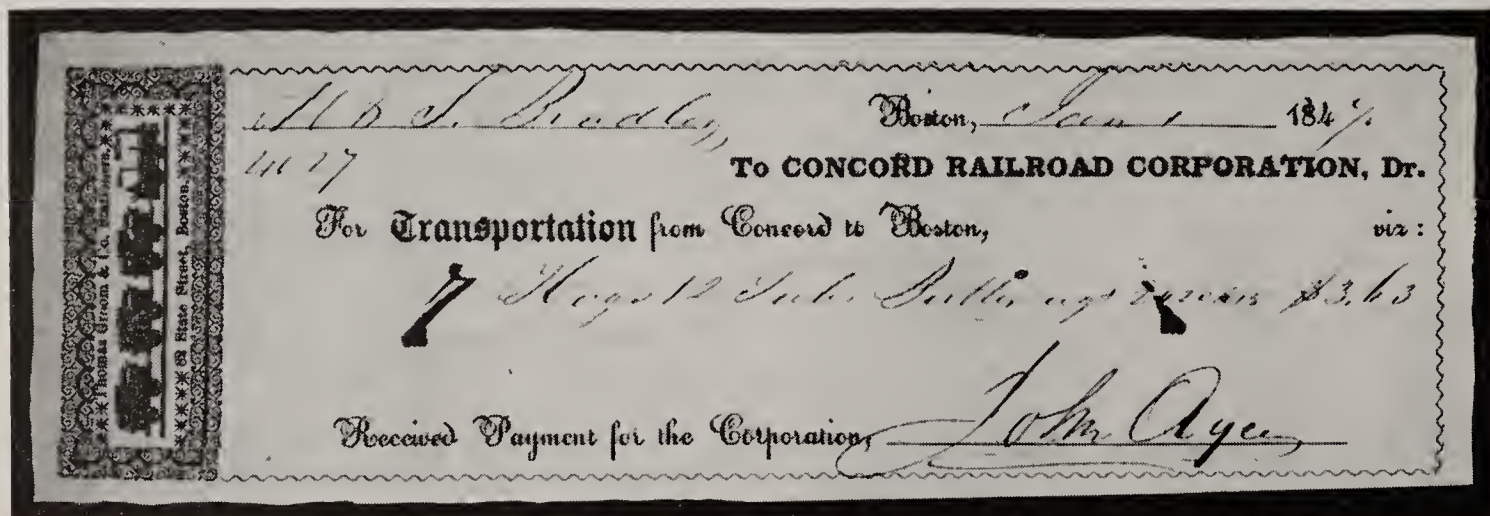 Thomas Groom & Co. Stationers,
82 State Street, Boston.
S. Bradley, Boston, Jan 1 1847.
27 To CONCORD RAILROAD CORPORATION, Dr.
For Transportation from Concord to Boston, viz:
7 Hogs 12 Tubs Butter $3.63
Received Payment for the Corporation, John Ayer